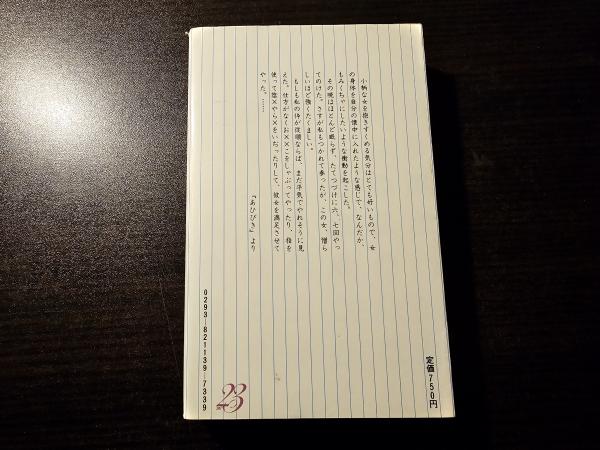 小柄な女を抱きすくめる気分はとても好いもので、女
の身体を自分の懐中に入れたような感じで、なんだか、
もみくちゃにしたいような衝動を起こした。
その晩はほとんど眠らず、たてつづけに六、七回やっ
てのけた。さすが私もつかれて参ったが、この女、憎ら
しいほど強くたくましい。
もしも私の伜が従順ならば、まだ平気でやれそうに見
えた。仕方がなくお××こをしゃぶってやったり、指を
使って陰×やら×をいぢったりして、彼女を満足させて
やった。……
『あひびき』より
0293-821139-7339
23
定価750円